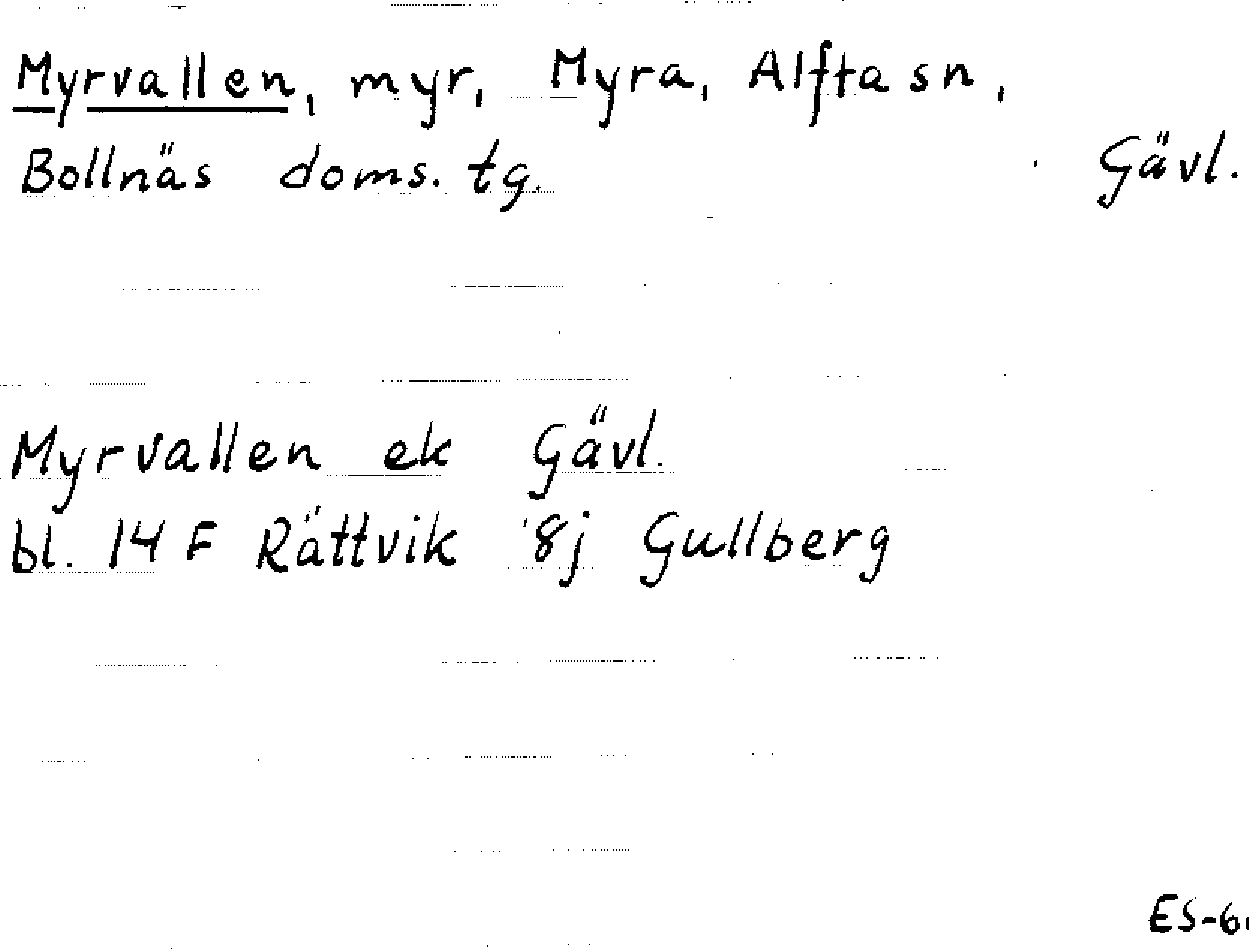 Myrvallen, myr, Myra, Alfta sn,
Bollnäs doms. tg. Gävl.
Myrvallen ek Gävl.
bl. 14 F Rättvik 8j Gullberg